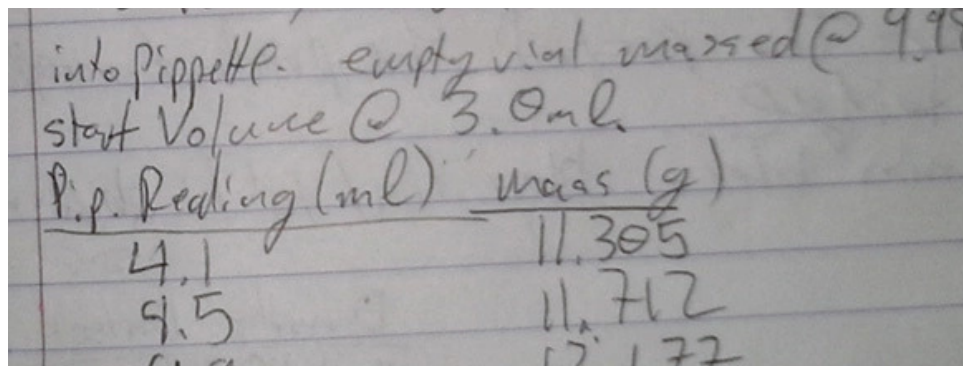 into Pippette. empty vial massed @ 9.98
start Volume @ 3.0ml.
Pip. Reading (ml) mass (g)
4.1 11.305
4.5 11.712
12.177